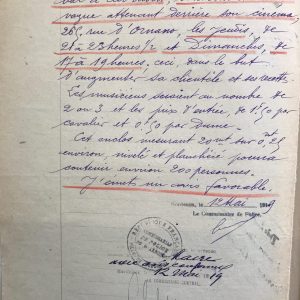 vogue attenant derrière son cinéma
265 rue d'Ornano, les jeudis, de
21 à 23 heures ½ et Dimanches, de
17 à 19 heures, ceci, dans le but
d'augmenter sa clientèle et sa recette.
Les musiciens seraient au nombre de
2 ou 3 et les prix d'entrée, de 1f50 par
cavalier et 0f50 par Dame.
Cet enclos mesurant 20 sur
environ, nivelé et planchéié pourra
contenir environ 200 personnes.
J'émets un avis favorable.
Bordeaux, le 1er Mai 1919
Le Commissaire de Police,
COMMISSARIAT
DE POLICE
avis conforme
12 Mai 1919
LE COMMISSAIRE CENTRAL,